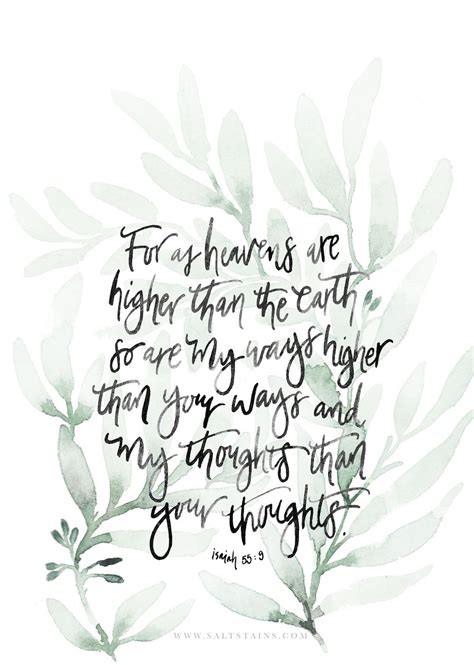 For as heavens are
higher than the earth
so are my ways higher
than your ways and
my thoughts than
your thoughts.
isaiah 55:9
WWW.SALTSTAINS.COM